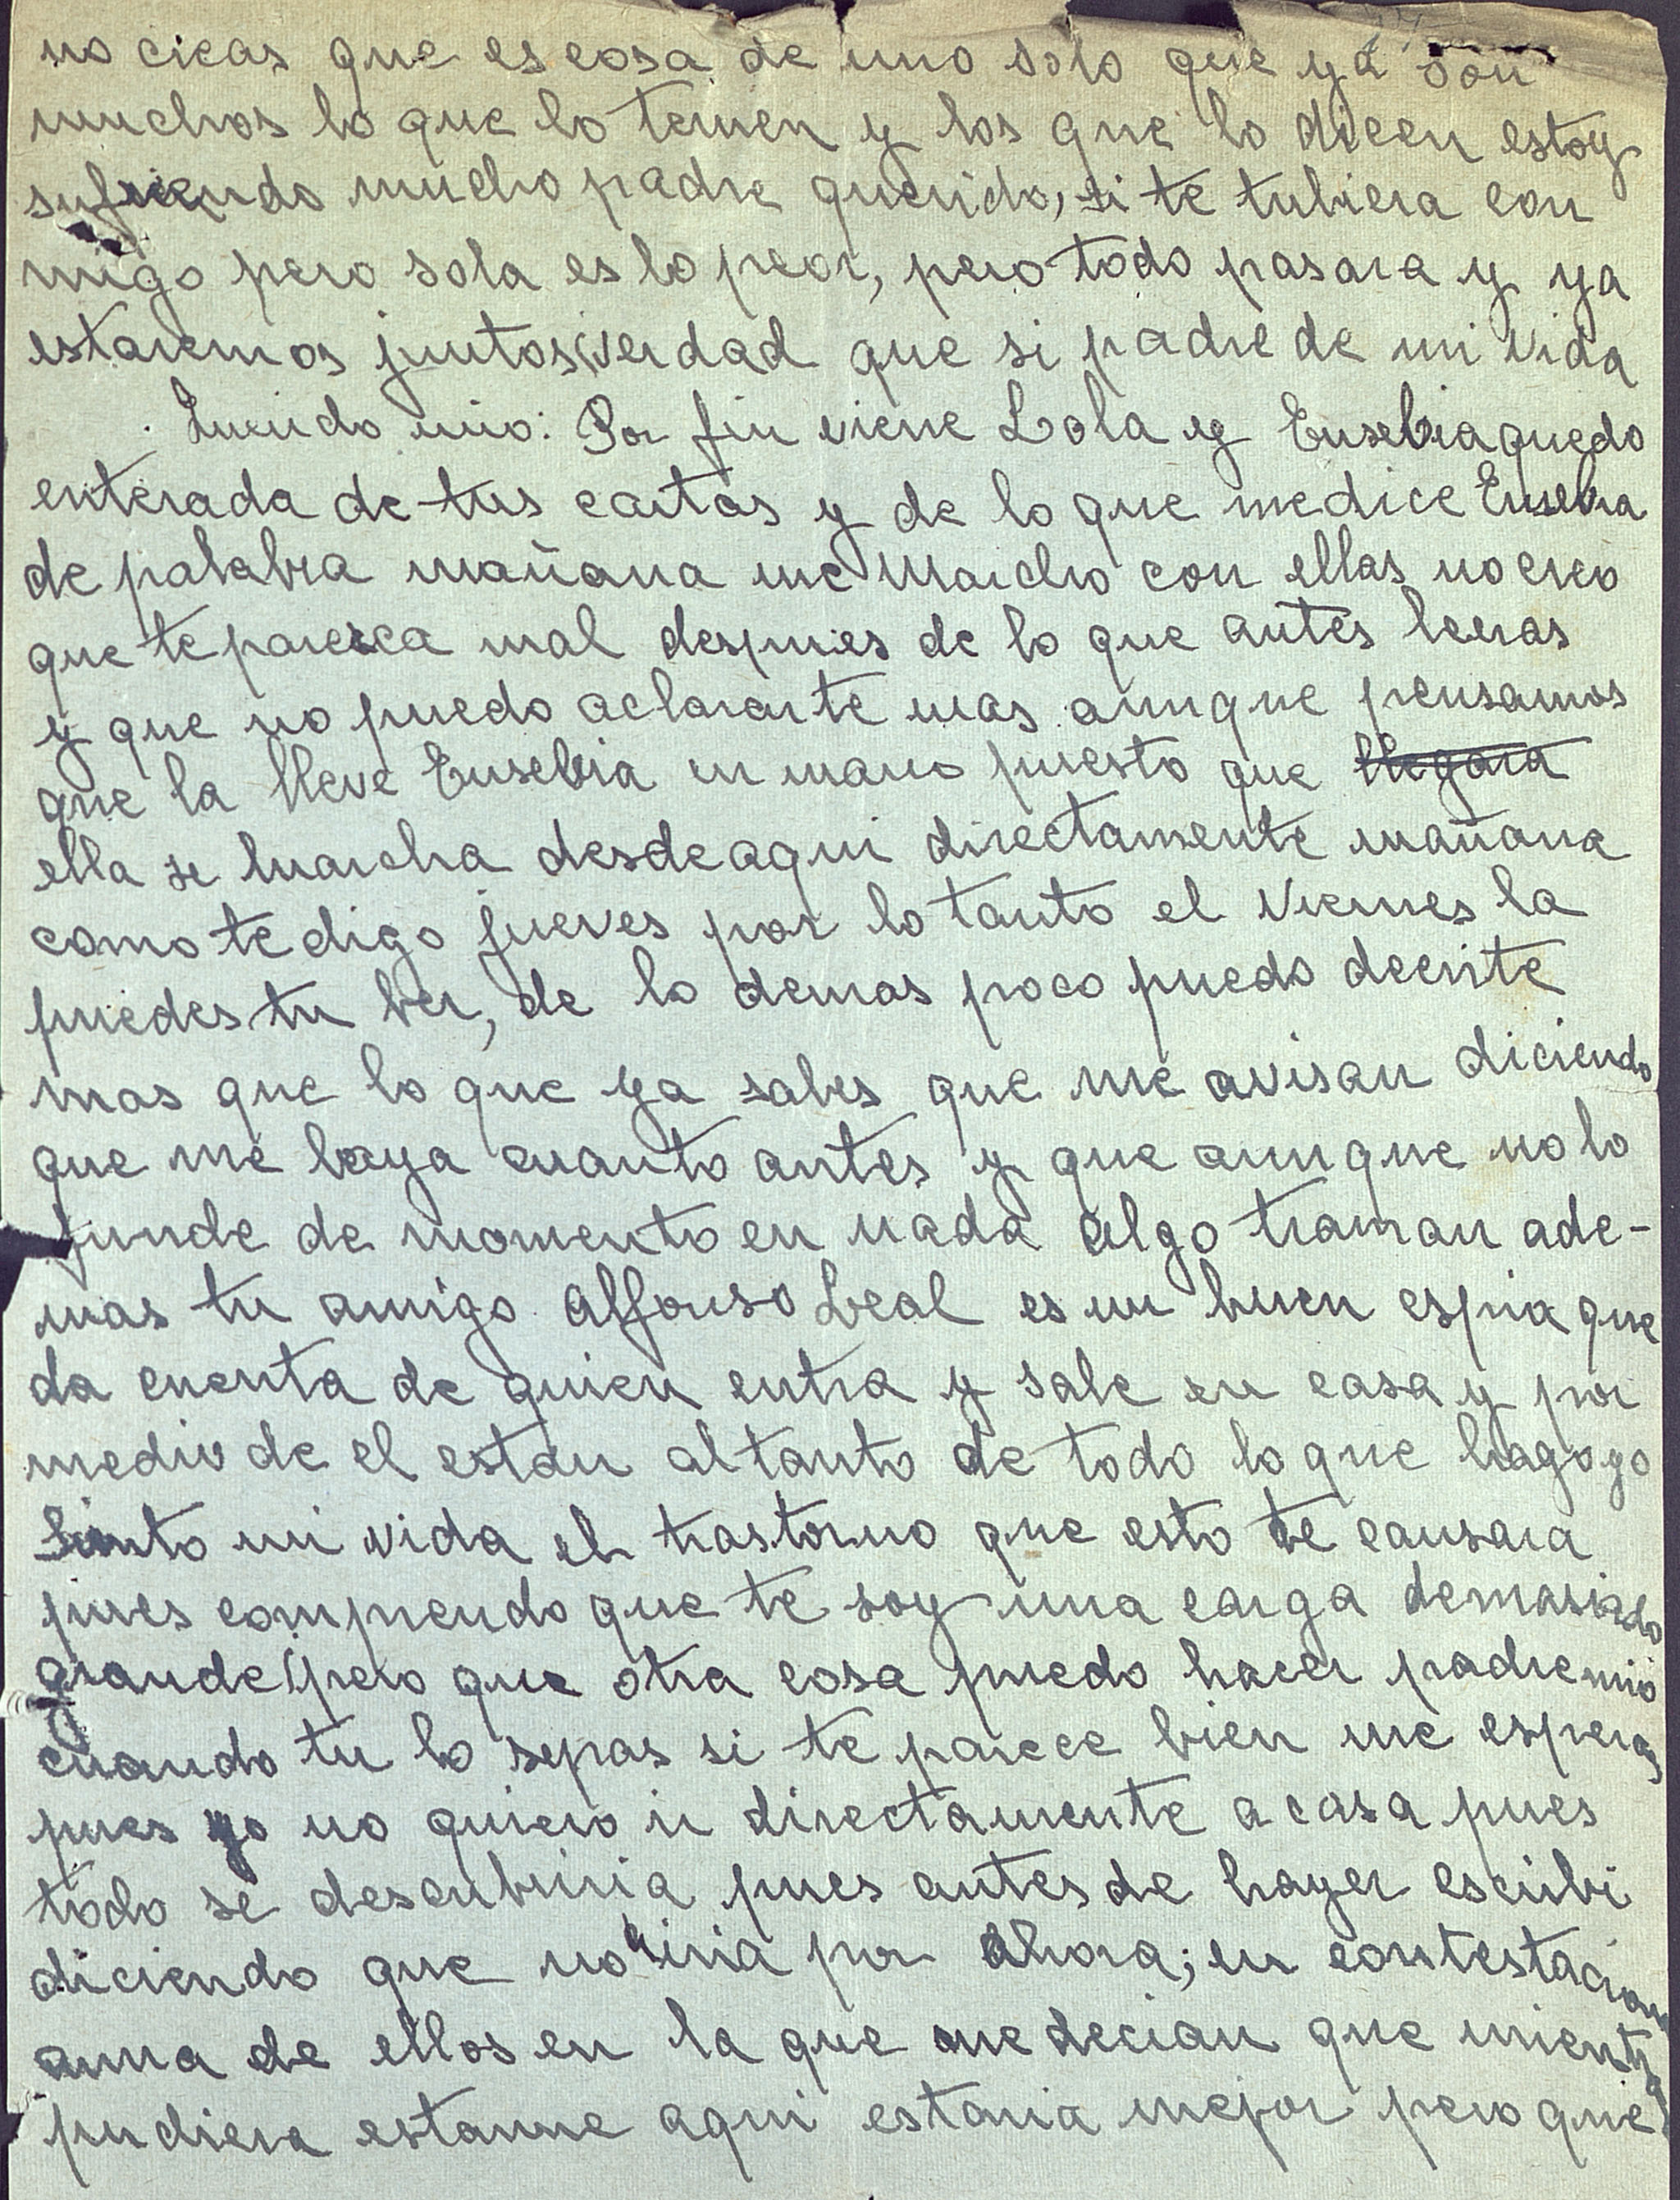 no creas que es cosa de uno solo que ya son
muchos lo que lo temen y los que lo dicen estoy
sufriendo mucho padre querido, si te tubiera con
migo pero sola es lo peor, pero todo pasara y ya
estaremos juntos ¿verdad que si padre de mi vida
Querido mio: Por fin viene Lola y Eusebia quedo
enterada de tus cartas y de lo que me dice Eusebia
de palabra mañana me Marcho con ellas no creo
que te paresca mal despues de lo que antes leeras
y que no puedo aclararte mas aunque pensamos
que la lleve Eusebia en mano puesto que llegara
ella se marcha desde aqui directamente mañana
como te digo jueves por lo tanto el Viernes la
puedes tu ber, de lo demas poco puedo decirte
mas que lo que ya sabes que me avisan diciendo
que me baya cuanto antes y que aunque no lo
funde de momento en nada algo traman ade-
mas tu amigo Alfonso Leal es un buen espia que
da cuenta de quien entra y sale en casa y por
medio de el estan al tanto de todo lo que hago yo
Siento mi vida el trastorno que esto te causara
pues comprendo que te soy una carga demasiado
grande ¿pero que otra cosa puedo hacer padre mio
cuando tu lo sepas si te parece bien me esperas
pues yo no quiero ir directamente a casa pues
todo se descubriria pues antes de hayer escribi
diciendo que no iria por ahora; en contestacion
auna de ellos en la que me decian que mientras
pudiera estarme aqui estaria mejor pero que